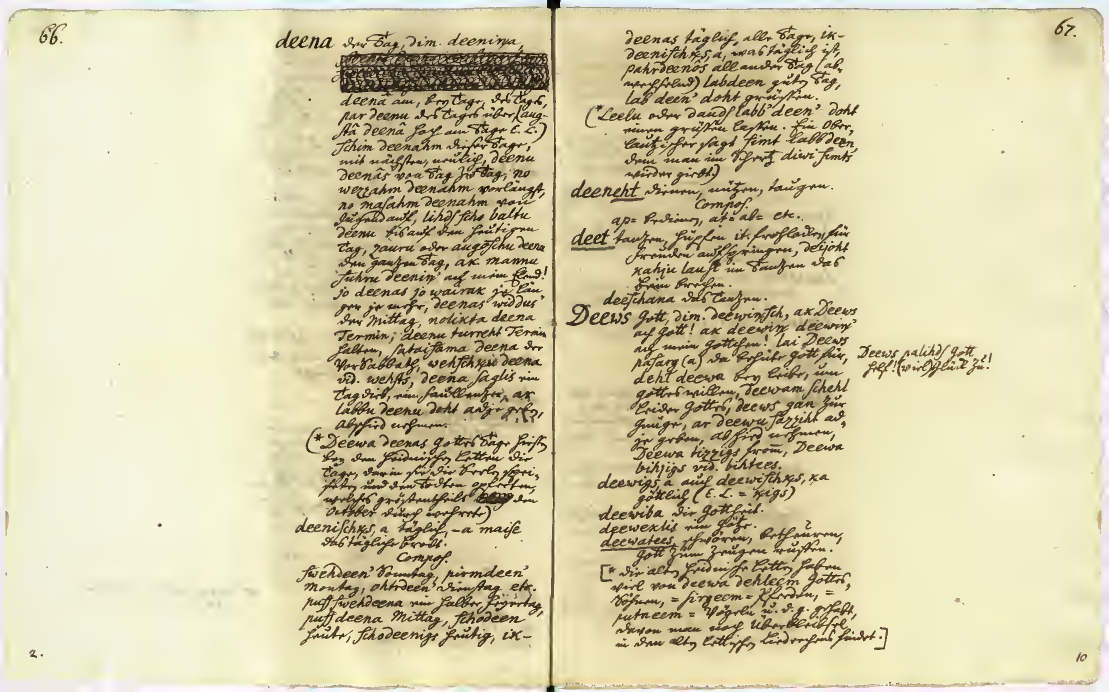 66.
deena der Tag, dim. deenina,
deenâ am, bey Tage, des Tages,
par deenu des Tages über, aug-
stâ deena hoch am Tage E. L.)
schim deenahm dieser Tage,
mit nächsten, neulich, deenu
deenâs von Tag zu Tag, no
wezzahm deenahm vorlängst,
no masahm deenahm von
Jugend auf, lihds scho baltu
deenu bis auf den heutigen
Tag, zauru oder augöschu deena
den ganzen Tag, ak mannu
suhru deenin' auf mein Elend!
jo deenas jo wairak je län-
ger je mehr, deenas widdus
der Mittag, nolikta deena
Termin; deenu turreht Termin
halten, sataisama deena der
Vor Sabbath, wehschkju deena
vid. wehsts, deena saglis ein
Tagdieb, ein faullenzer, ar
labbu deenu doht adje geben,
Abschied nehmen.
(* Deewa deenas Gottes Tage heissen
bey den heidnischen Letten die
Tage, darin sie die Seelen spei-
seten und den Todten opferten,
welches gröstentheils den
October durch wehrete)
deenischks, a täglich, -a maise
das tägliche brodt.
Compos.
swehdeen' Sonntag, pirmdeen'
Montag, ohtrdeen' Dienstag etc.
puss swehdeena ein halber feyertag,
puss deena Mittag, schodeen
heute, schodeenigs heutig, ik-
2.
67.
deenas täglich, alle Tage, ik-
deenischks, a, was täglich ist,
pahrdeenôs all ander Tag (ab-
wechselnd) labdeen guten Tag,
lab deen' doht grüssen.
(* Leelu oder daudz labb' deen' doht
einen grüssen lassen. Ein Ober-
lautzischer sagt simt labbdeen
dem man im Scherz diwi simts
wieder giebt.)
deeneht dienen, nützen, taugen.
Compos.
ap= bedienen, at= ab= etc.
deet tanzen, hüpfen it. frohlocken, für
Freuden aufspringen, deijoht
kahju laust im Tanzen das
bein brechen.
deeschana das Tanzen.
Deews Gott, dim. deewinsch, ak Deews
ach Gott! ak deewin deewin'
ach mein Gottchen! lai Deews
pasarg (a) da behüte Gott für,
deht deewa bey leibe, um
Gottes willen, Deewam schehl
leider Gottes, deews gan zur
gnüge, ar deewu sazziht ad-
je geben, abschied nehmen,
Deewa bijigs from, Deewa
bihjigs vid. bihtees.
Deews palihds Gott
helf! (viel) Glück zu!
deewigs, a auch deewischks, ka
göttlich (E. L. = kigs)
deewiba die Gottheit.
deeweklis ein Götze.
deewatees, schwören, betheuren,
Gott zum Zeugen ruffen.
[* die alten heidnische Letten haben
viel von deewa dehleem Gottes,
Söhnen, = sirgeem = Pferden, =
putneem = Vögeln u. d. g. gehabt,
davon man noch Überbleibsel
in den alten Lettischen Liederchens findet.]
10